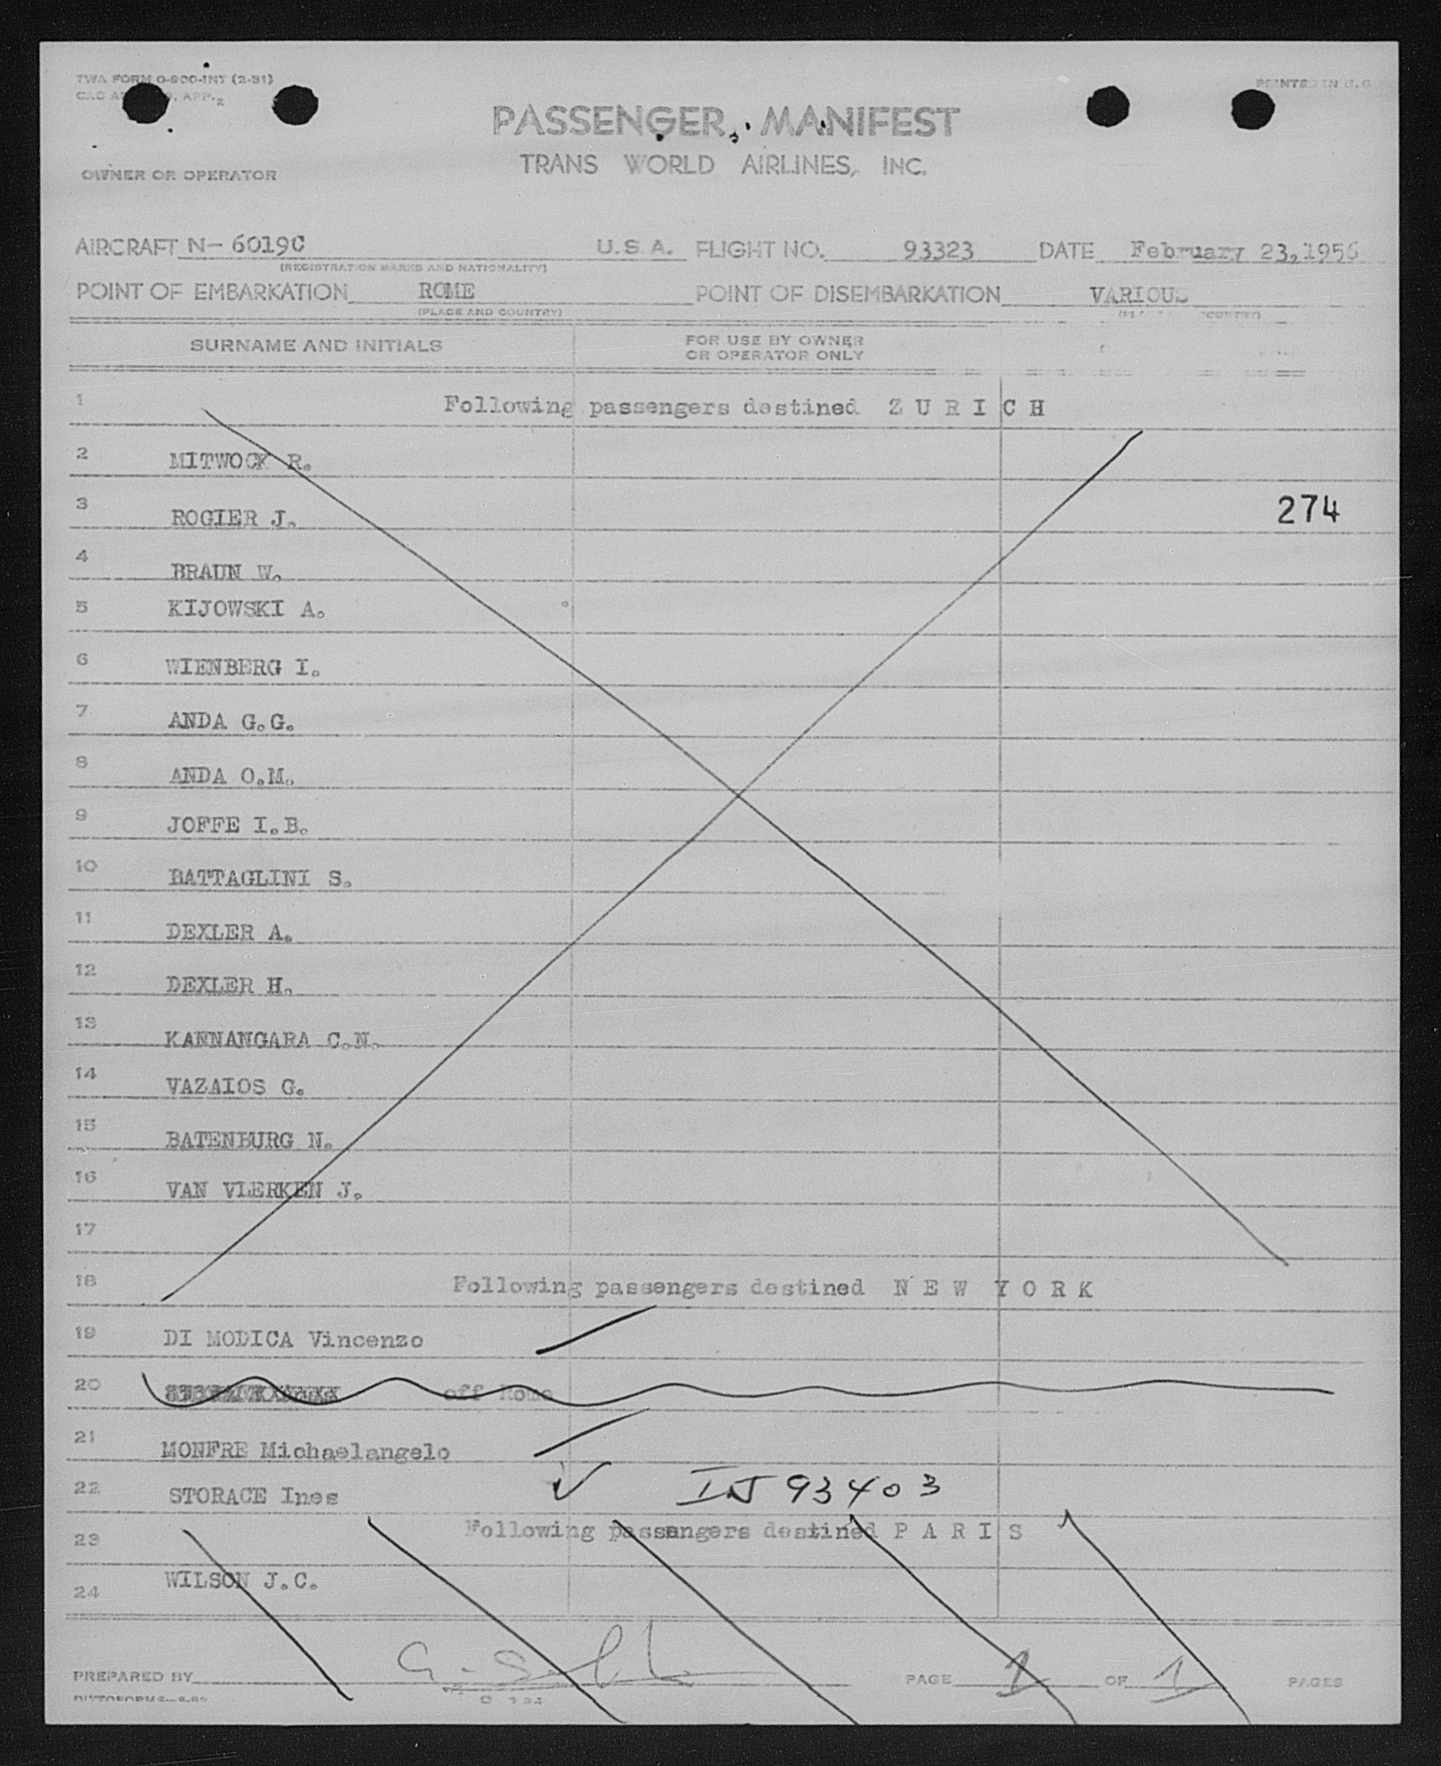 TWA FORM O-800-INT (2-51)
PRINTED IN U.S
PASSENGER MANIFEST
TRANS WORLD AIRLINES, INC.
OWNER OR OPERATOR
AIRCRAFT N- 6019C U.S.A. FLIGHT NO. 93323 DATE February 23,1956
(REGISTRATION MARKS AND NATIONALITY)
POINT OF EMBARKATION ROME POINT OF DISEMBARKATION VARIOUS
(PLACE AND COUNTRY)
SURNAME AND INITIALS FOR USE BY OWNER
OR OPERATOR ONLY
1 Following passengers destined Z U R I C H
2 MITWOCK R.
3 ROGIER J. 274
4 BRAUN W.
5 KIJOWSKI A.
6 WIENBERG I.
7 ANDA G.G.
8 ANDA O.M.
9 JOFFE I.B.
10 BATTAGLINI S.
11 DEXLER A.
12 DEXLER H.
13 KANNANGARA C.N.
14 VAZAIOS G.
15 BATENBURG N.
16 VAN VLERKEN J.
17
18 Following passengers destined N E W Y O R K
19 DI MODICA Vincenzo
20 off Rome
21 MONFRE Michaelangelo
22 STORACE Ines IN 93403
23 Following passangers destined P A R I S
24 WILSON J.C.
PREPARED BY PAGE 1 OF 1 PAGES